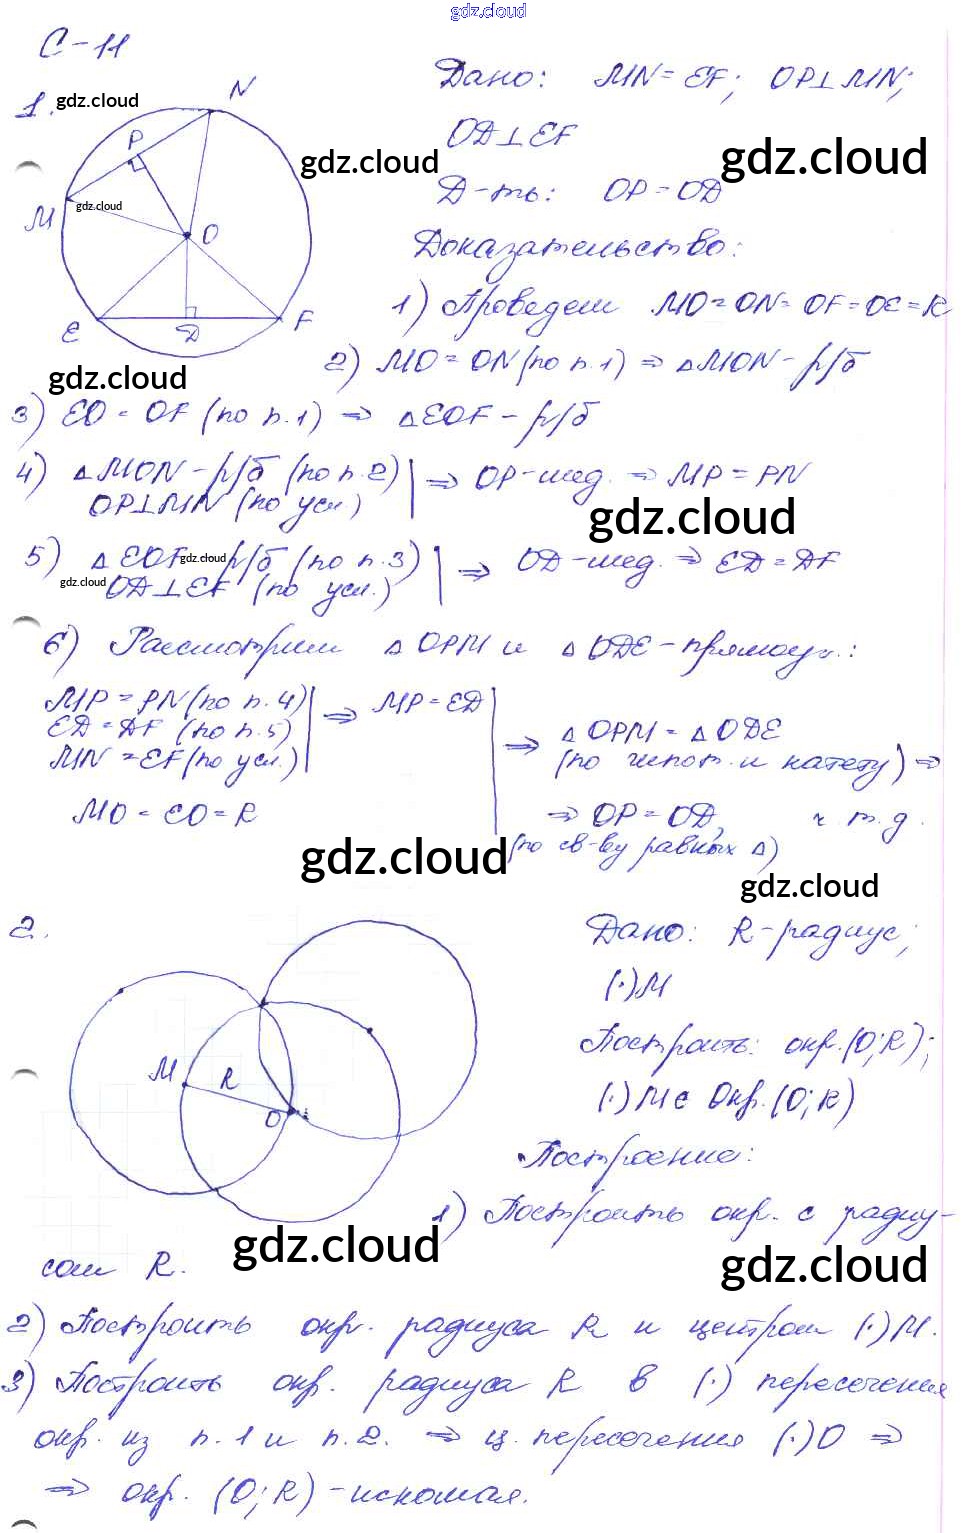 gdz.cloud
С-11
1. gdz.cloud
N
P
M
gdz.cloud
O
E
D
F
Дано: MN = EF; OP⊥MN;
OD⊥EF
gdz.cloud
gdz.cloud
Д-ть: OP = OD
Доказательство:
1) Проведем MO = ON = OF = OE = R
2) MO = ON (по п.1) ⇒ △MON - р/б
gdz.cloud
3) EO = OF (по п.1) ⇒ △EOF - р/б
4) △MON - р/б (по п.2) | ⇒ OP - мед. ⇒ MP = PN
OP⊥MN (по усл.)
gdz.cloud
5) △EOF gdz.cloud р/б (по п.3) | ⇒ OD - мед. ⇒ ED = DF
gdz.cloud OD⊥EF (по усл.)
6) Рассмотрим △OPM и △ODE - прямоуг.:
MP = PN (по п.4) | ⇒ MP = ED
ED = DF (по п.5)
MN = EF (по усл.)
MO = EO = R
⇒ △OPM = △ODE
(по гипот. и катету) ⇒
⇒ OP = OD, ч.т.д.
(по св-ву равных △)
gdz.cloud
gdz.cloud
2.
M
R
O
Дано: R - радиус;
(·)M
Построить: окр.(O;R);
(·)M ∈ Окр.(O;R)
Построение:
1) Построить окр. с радиу-
сом R.
gdz.cloud
gdz.cloud
2) Построить окр. радиуса R и центром (·)M.
3) Построить окр. радиуса R в (·) пересечения
окр. из п.1 и п.2. ⇒ ц. пересечения (·)O ⇒
⇒ окр. (O;R) - искомая.